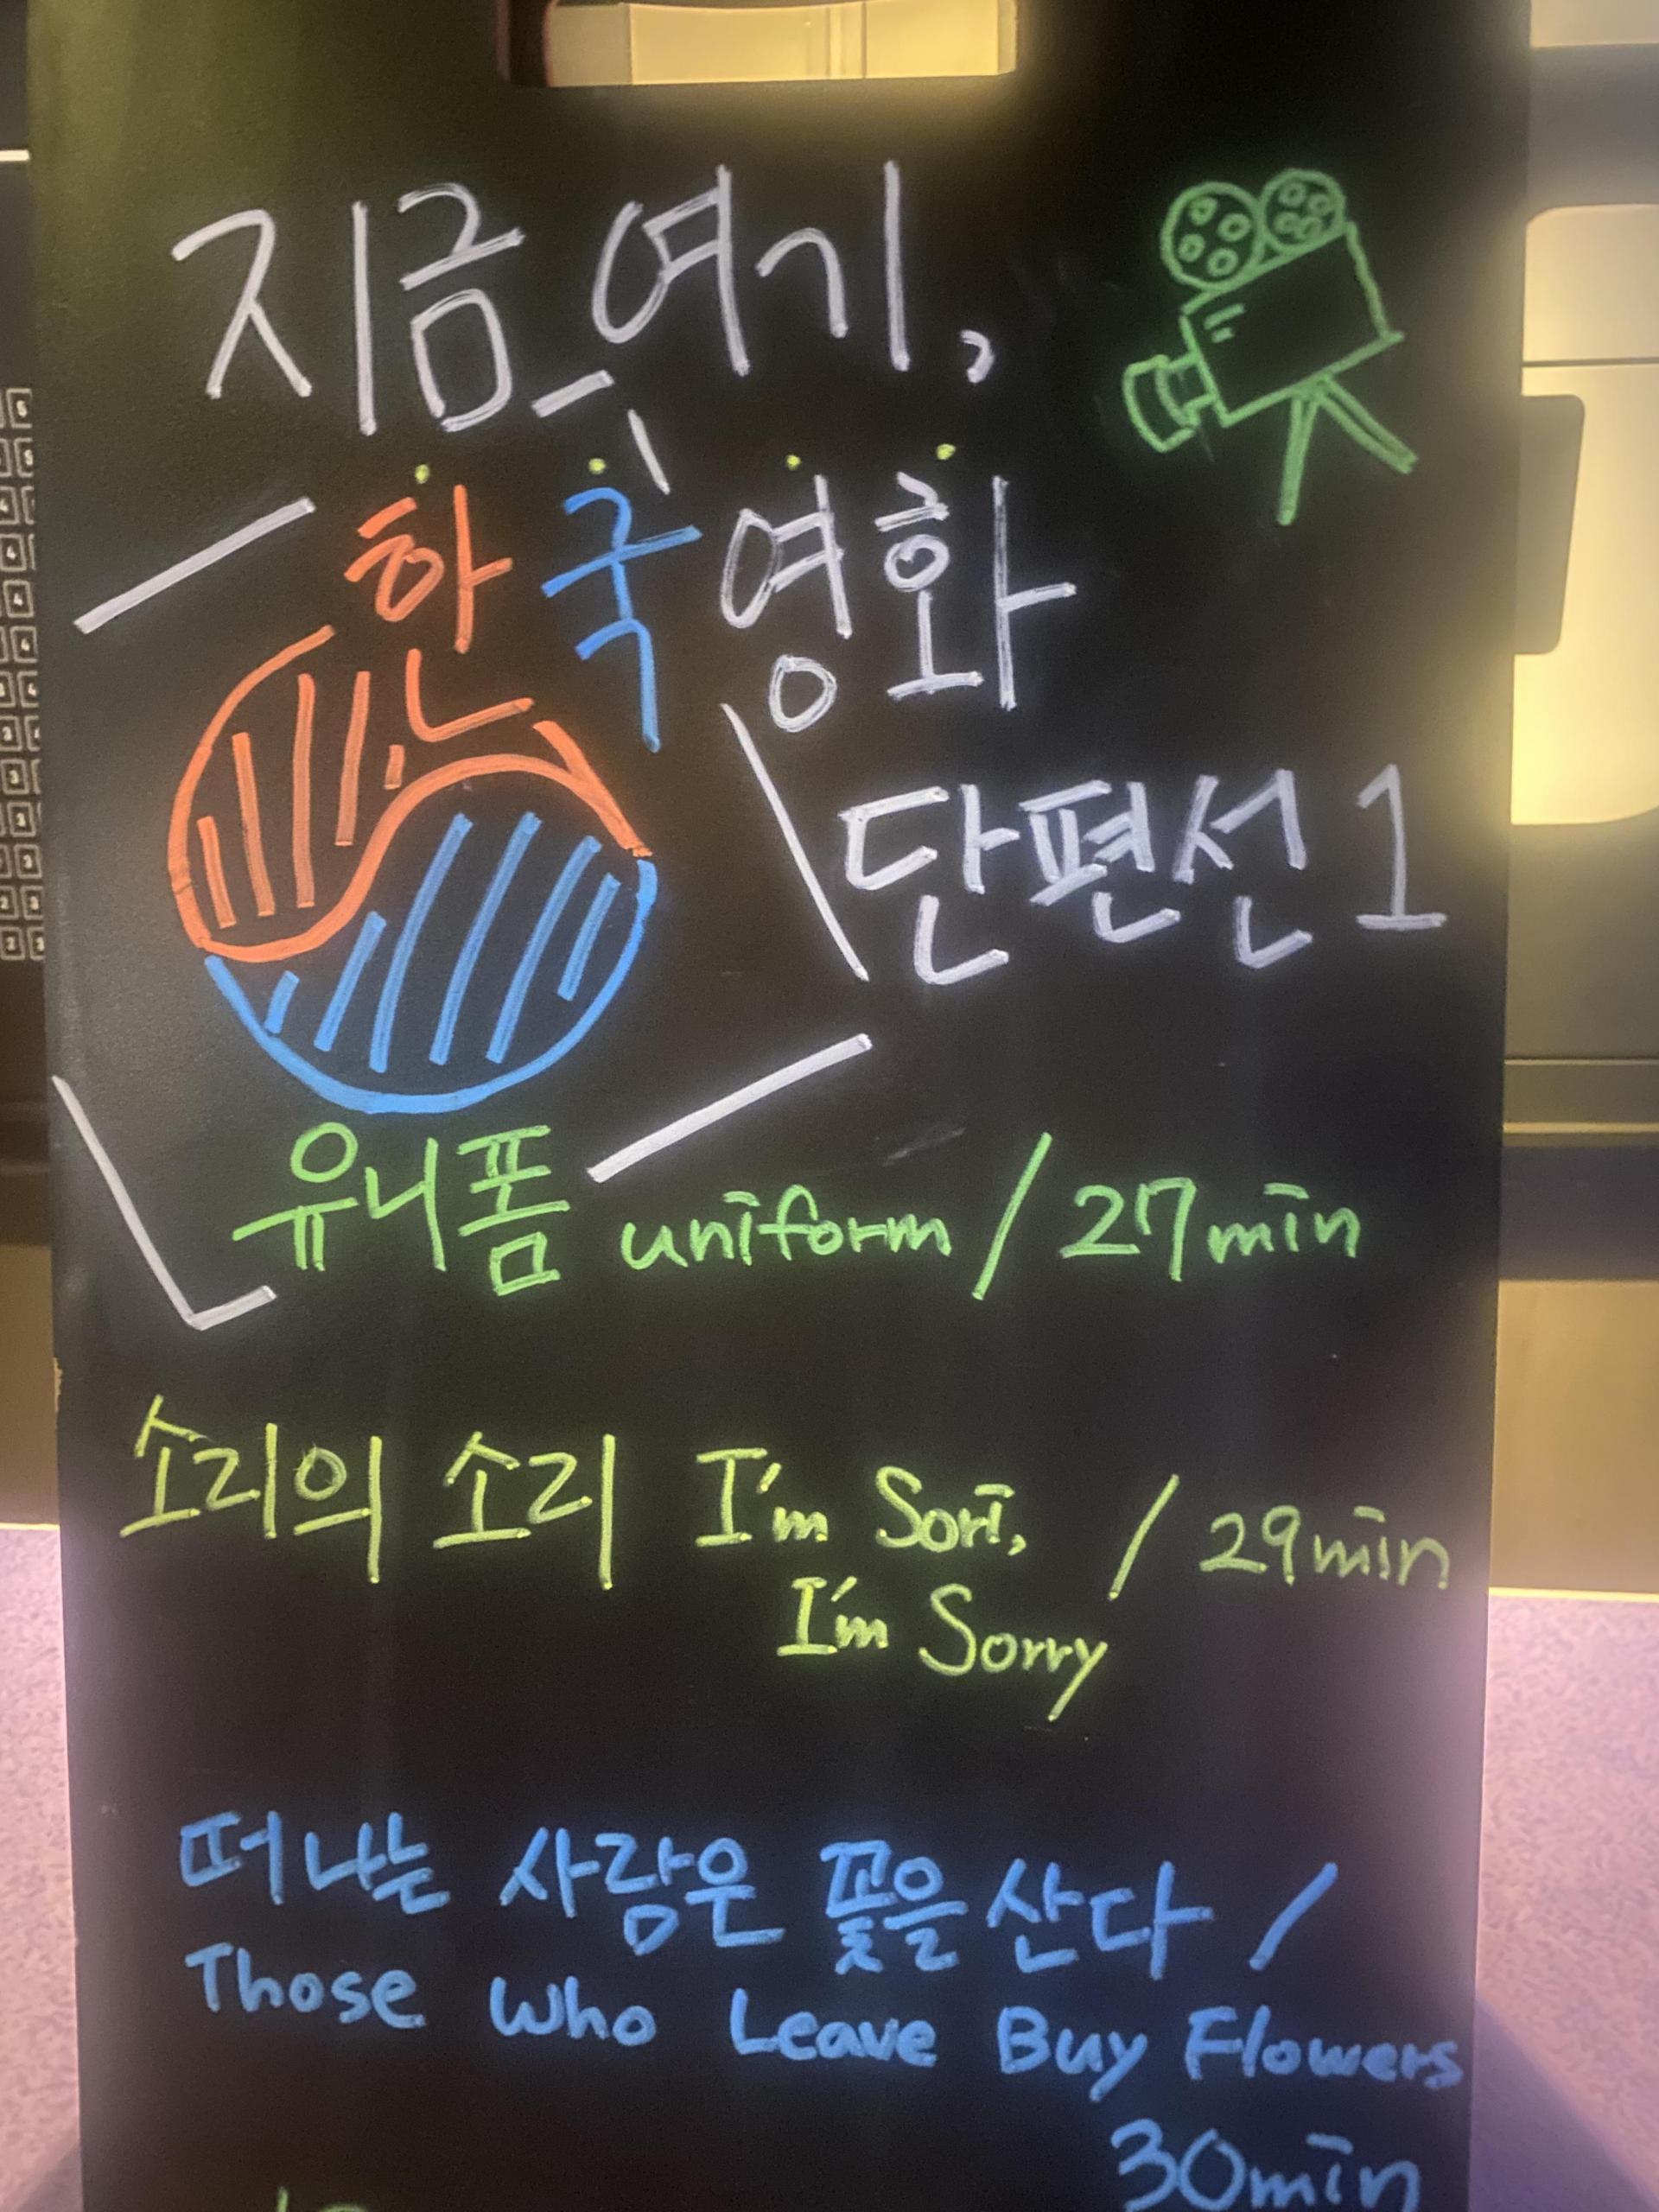 지금 여기,
한국영화
단편선 1
유니폼 uniform / 27min
소리의 소리 I'm Sori, / 29min
I'm Sorry
떠나는 사람은 꽃을 산다 /
Those Who Leave Buy Flowers
30min